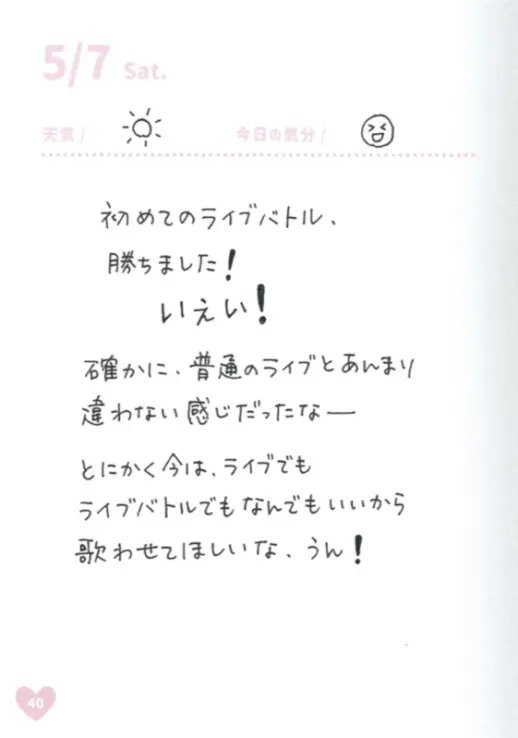 5/7 Sat.
天気 / 今日の気分 /
初めてのライブバトル、
勝ちました!
いぇい!
確かに、普通のライブとあんまり
違わない感じだったなー
とにかく今は、ライブでも
ライブバトルでもなんでもいいから
歌わせてほしいな、うん!
40